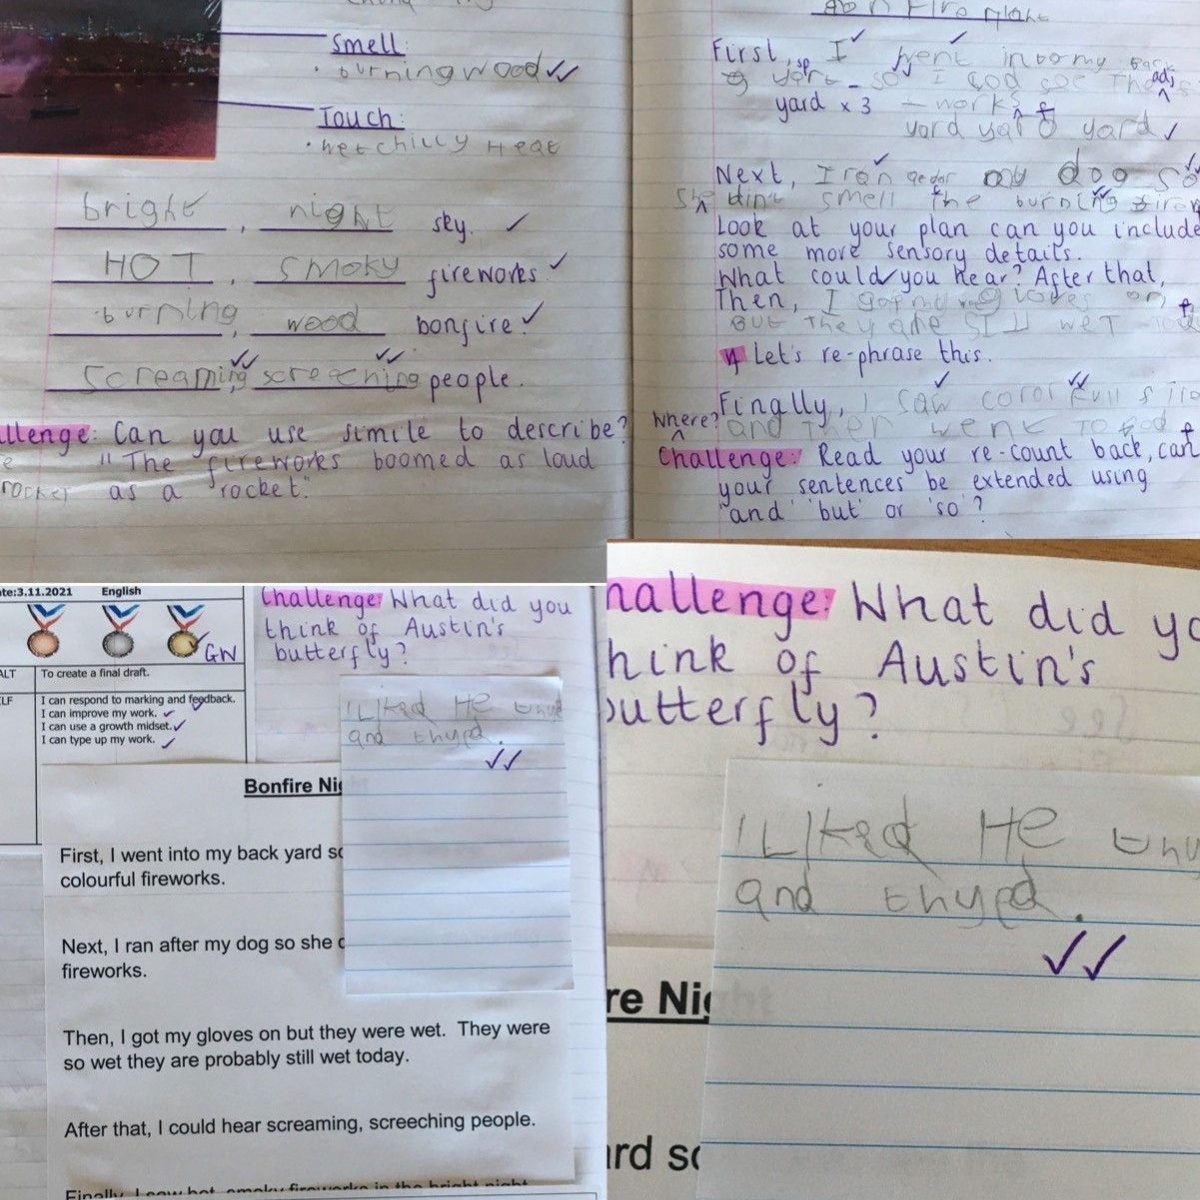 Smell:
· burning wood
Touch:
· wet chilly Heat
bright, night sky.
HOT, smoky fireworks
burning, wood bonfire.
Screaming, screeching people.
llenge: Can you use simile to describe?
"The fireworks boomed as loud
rocket as a "rocket."
First, sp I went into my back
so I cod see adj
yard x 3 works
yard yard yard
Next, I ran my dog so
She smell the burning
Look at your plan can you include
some more sensory details.
What could you hear? After that,
Then, I got my gloves on
But They are Still wet
Let's re-phrase this.
Finally, I saw
Where? and Then went To
Challenge: Read your re-count back, can
your sentences be extended using
'and' 'but' or 'so'?
te:3.11.2021 English
GW
ALT To create a final draft.
LF I can respond to marking and feedback.
I can improve my work.
I can use a growth midset.
I can type up my work.
Challenge: What did you
think of Austin's
butterfly?
I Liked He
and thyed.
Bonfire Nig
First, I went into my back yard so
colourful fireworks.
Next, I ran after my dog so she
fireworks.
Then, I got my gloves on but they were wet. They were
so wet they are probably still wet today.
After that, I could hear screaming, screeching people.
Finally, I saw hot, smoky fireworks in the bright night
hallenge: What did yo
hink of Austin's
butterfly?
I Liked He
and thyed.
re Nig
ard so